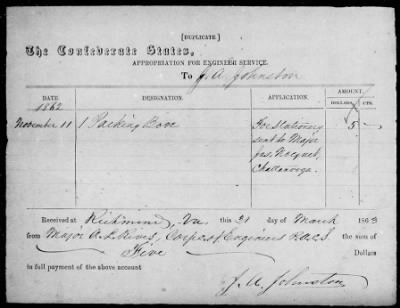 [DUPLICATE]
The Confederate States,
APPROPRIATION FOR ENGINEER SERVICE.
To J. A. Johnston
DATE. DESIGNATION. APPLICATION. AMOUNT.
DOLLARS. CTS.
1862
November 11 1 Packing Box For Stationery 5 —
sent to Major
Jas. Nocquet,
Chattanooga.
Received at Richmond, Va. this 31 day of March 1863
from Major A. L. Rives, Corps of Engineers P.A.C.S. the sum of
Five Dollars
in full payment of the above account
J. A. Johnston